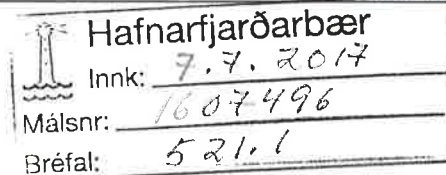 Hafnarfjarðarbær
Innk: 7.7.2017
Málsnr: 1607496
Bréfal: 521.1